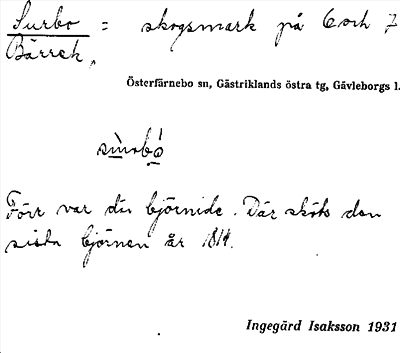 Surbo = skogsmark på 6 och 7
Bärrek,
Österfärnebo sn, Gästriklands östra tg, Gävleborgs l.
Förr var där björnide. Där sköts den
sista björnen år
Ingegärd Isaksson 1931